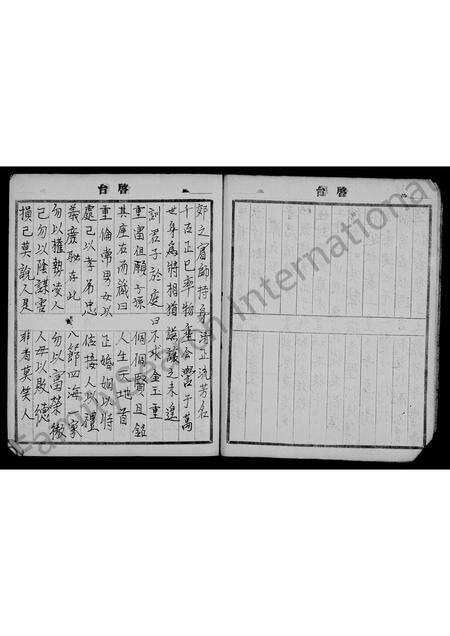 啓 台
郊之賓師持身清正流芳名
千古正己率物童全學于萬
世身爲將相猶謙讓之未遑
訓君子於庭曰不求金玉重
重富但願子孫個個賢且銘
其座右而箴曰人生天地首
重倫常男女以正婚姻以時
處己以孝弟忠信接人以禮
義廉恥存此八節四海一家
勿以權勢凌人勿以富榮傲
己勿以陰謀害人毋以敗德
損己莫說人是非者莫笑人
啓 台
FamilySearch International